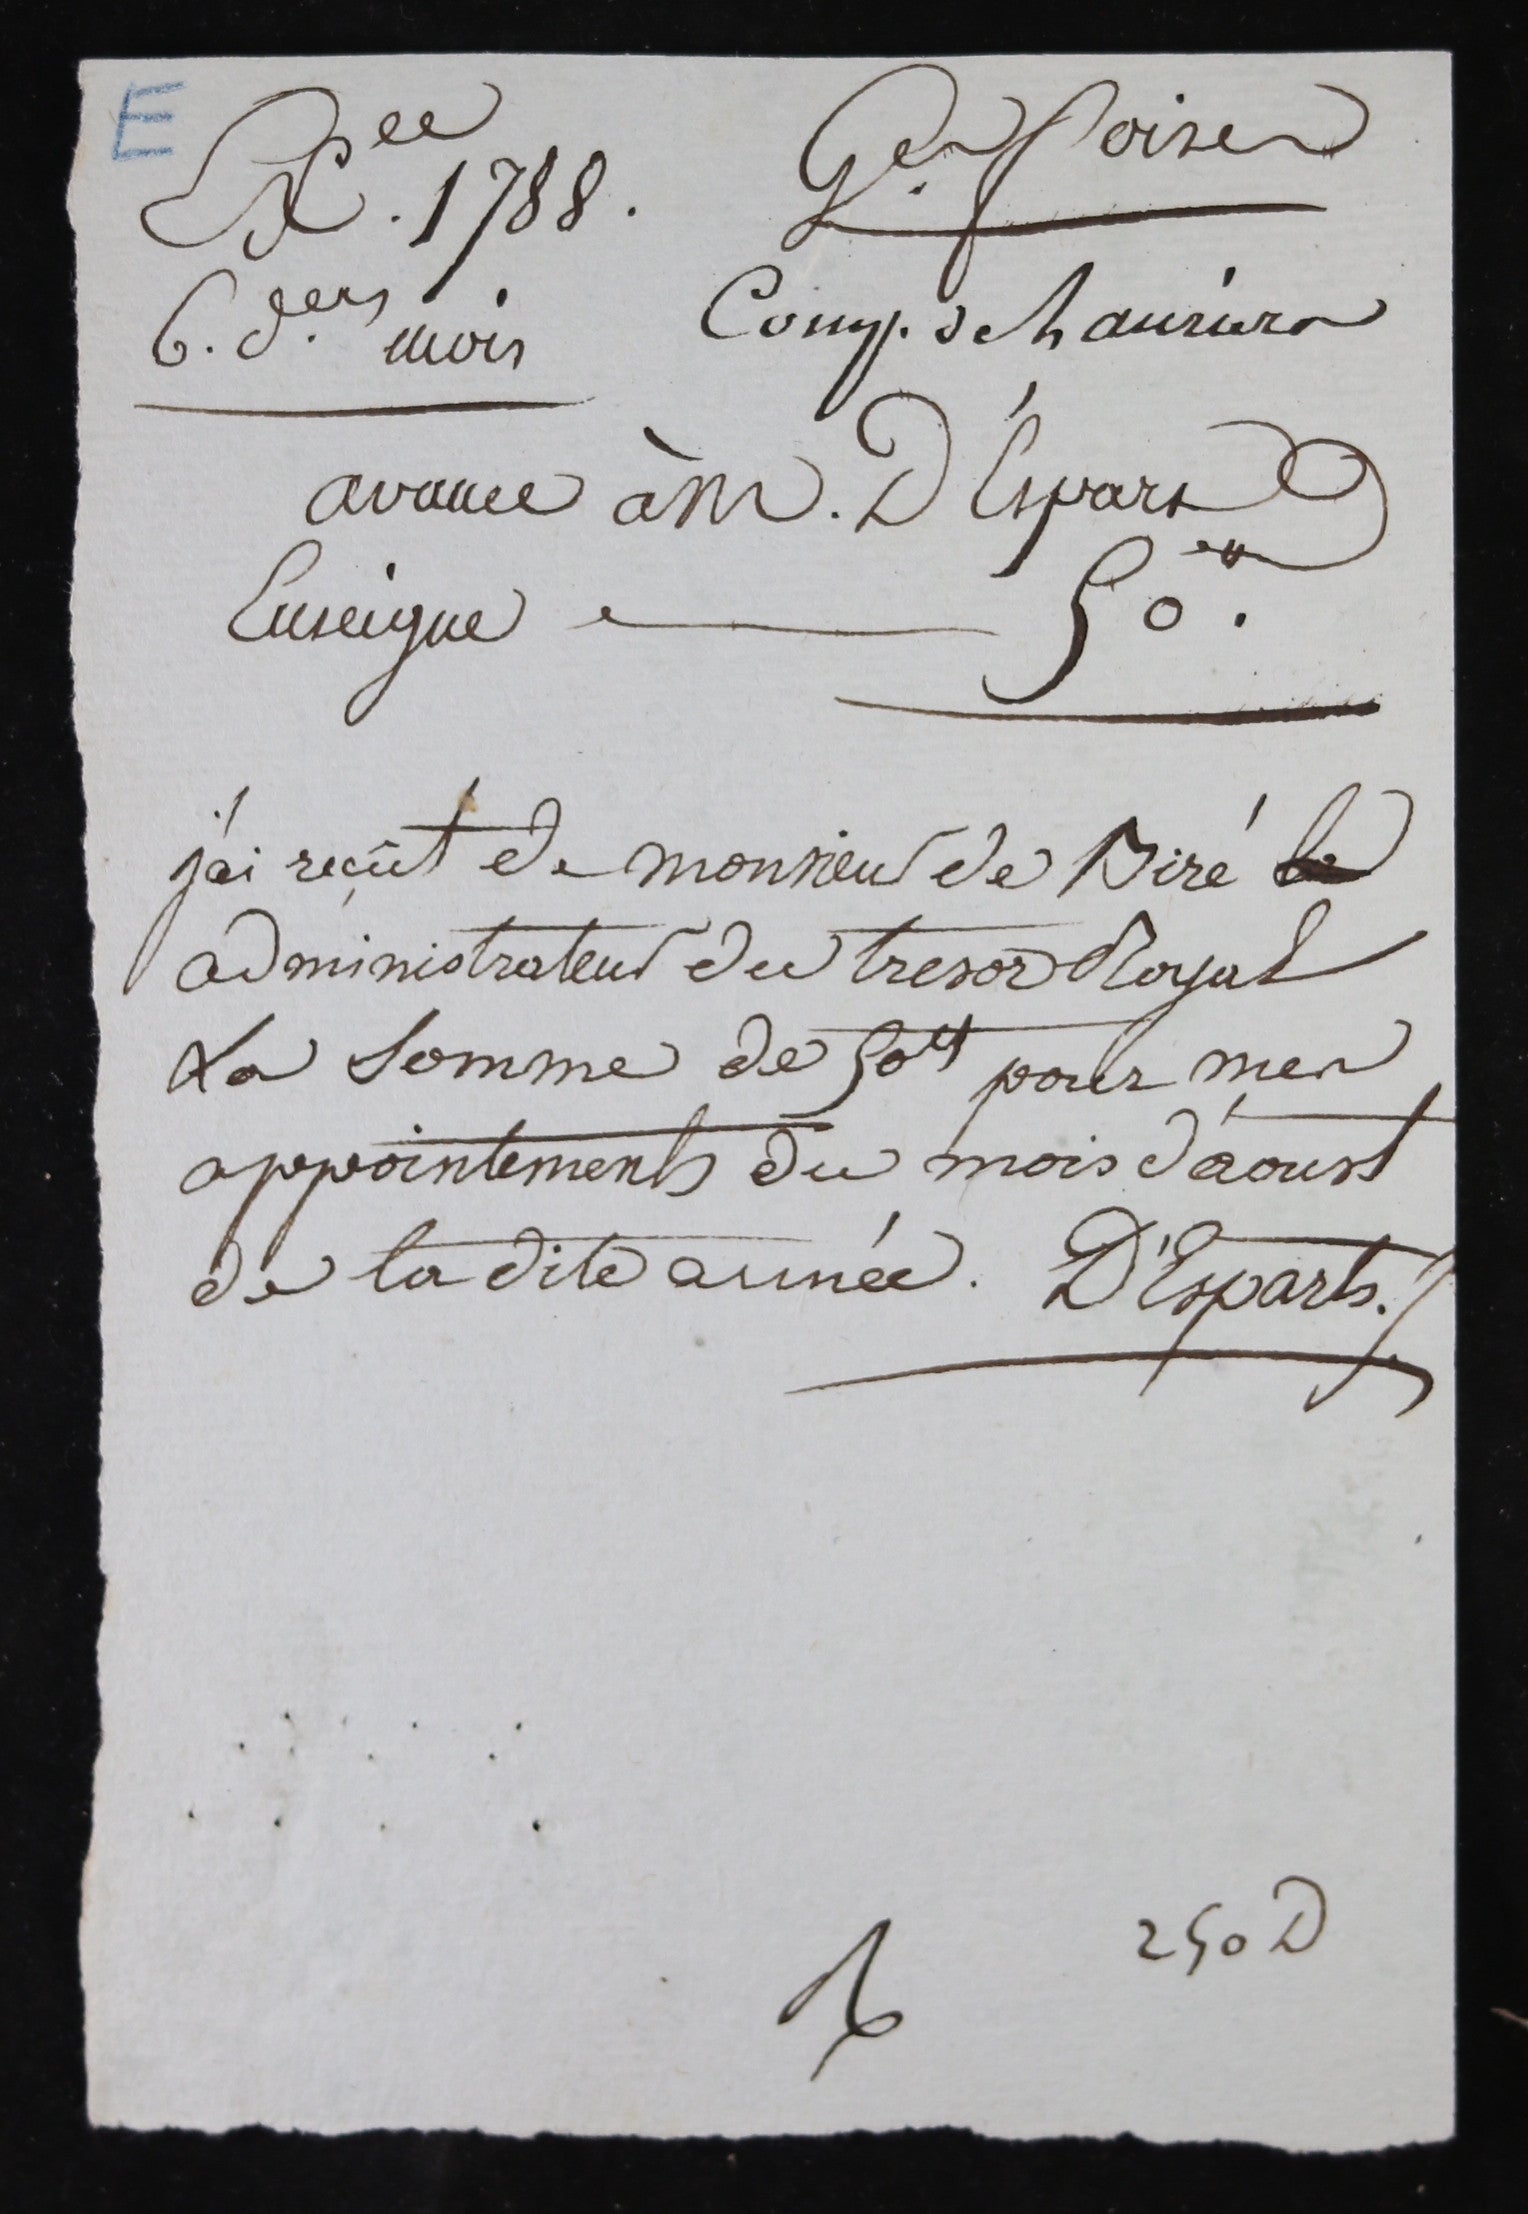 E
Ex.ce 1788.
6. d.ers mois
G.es foises
Comp. d'hauriers
avance à M. D'Esparts
Enseigne 50.tt
j'ai reçût de monsieur de Biré
administrateur du tresor Royal
La Somme de 50tt pour mes
appointements du mois d'aoust
de la dite année. D'Esparts.
250 D